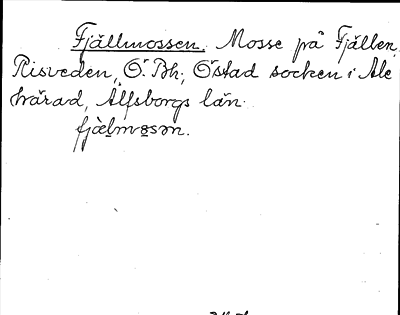 Fjällmossen. Mosse på Fjällen,
Risveden, Ö. Bh, Östad socken i Ale
härad, Älfsborgs län.
fjælmosən.